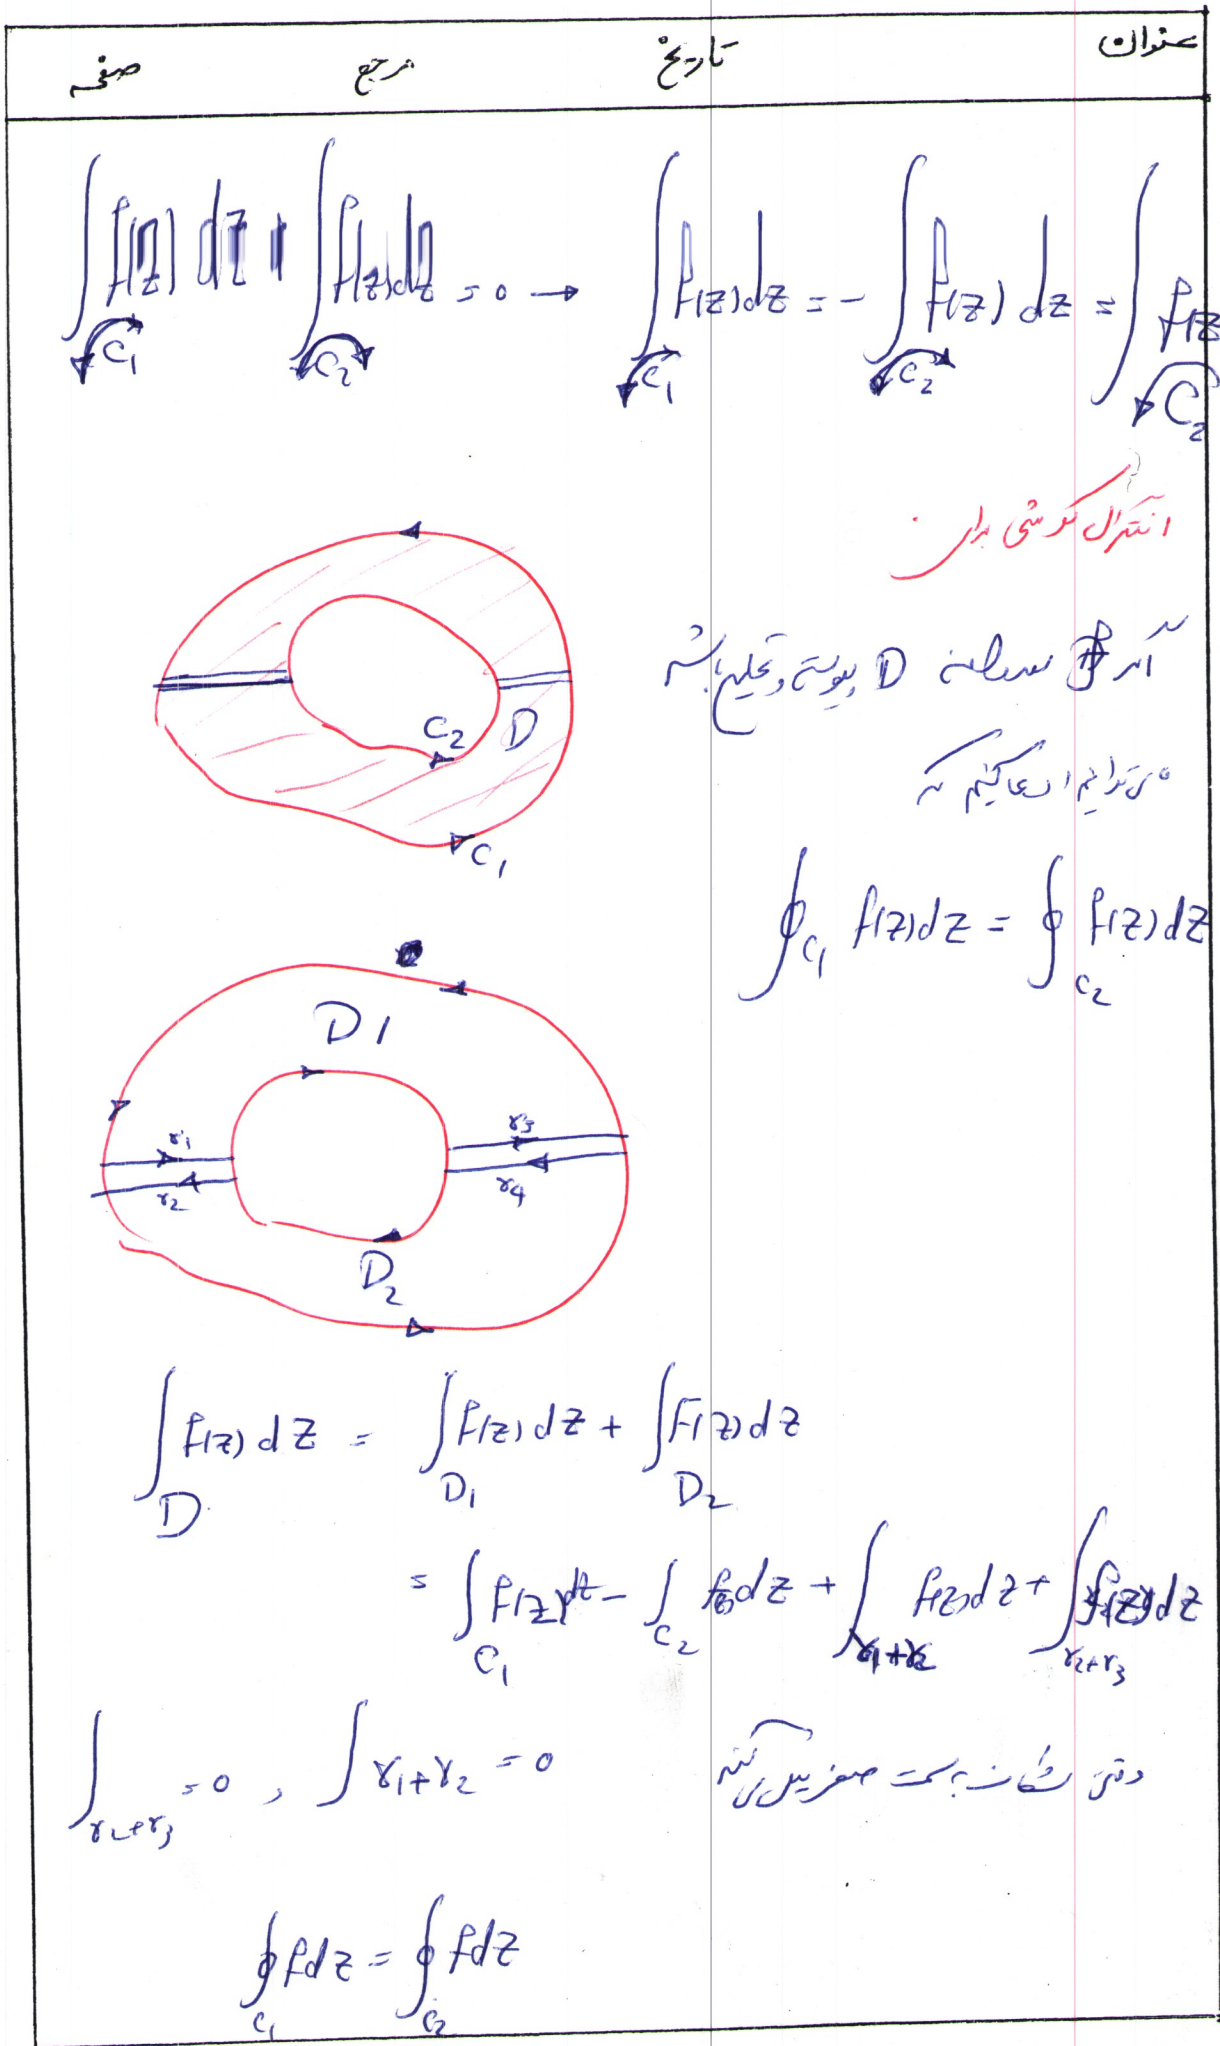 عنوان تاریخ مرجع صفحه
∫_{C₁} f(z) dz + ∫_{C₂} f(z) dz = 0 → ∫_{C₁} f(z) dz = - ∫_{C₂} f(z) dz = ∫_{C₂} f(z
انتگرال کوشی برای
اگر f D پیوسته و تحلیلی باشد
می‌توانیم ادعا کنیم که
C₂ D
C₁
∮_{C₁} f(z) dz = ∮_{C₂} f(z) dz
D1
γ₁ γ₃
γ₂ γ₄
D₂
∫_D f(z) dz = ∫_{D₁} f(z) dz + ∫_{D₂} F(z) dz
= ∫_{C₁} f(z) dz - ∫_{C₂} f(z) dz + ∫_{γ₁+γ₂} f(z) dz + ∫_{γ₂+γ₃} f(z) dz
وقتی شکاف به سمت صفر میل می‌کند
∫_{γ₂+γ₃} = 0 , ∫ γ₁+γ₂ = 0
∮_{C₁} f dz = ∮_{C₂} f dz